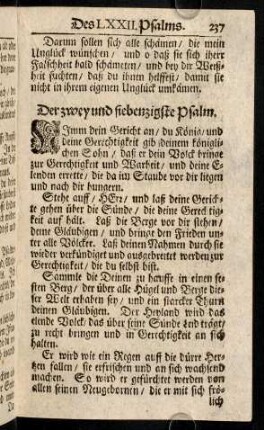 Des LXXII. Psalms. 237
Darum sollen sich alle schämen/ die mein
Unglück wünschen/ und o daß sie sich ihrer
Falschheit bald schämeten/ und bey der Weiß-
heit suchten/ daß du ihnen helffest/ damit sie
nicht in ihrem eigenen Unglück umkämen.
Der zwey und siebenzigste Psalm.
NImm dein Gericht an/ du König/ und
deine Gerechtigkeit gib deinem königli-
chen Sohn/ daß er dein Volck bringe
zur Gerechtigkeit und Warheit/ und deine E-
lenden errette/ die da im Staube vor dir liegen
und nach dir hungern.
Stehe auff/ HErr/ und laß deine Gerich-
te gehen über die Sünde/ die deine Gerechtig-
keit auf hält. Laß die Berge vor dir stehen/
deine Gläubigen/ und bringe den Frieden un-
ter alle Völcker. Laß deinen Nahmen durch sie
wieder verkündiget und ausgebreitet werden zur
Gerechtigkeit/ die du selbst bist.
Sammle die Deinen zu hauffe in einen fe-
sten Berg/ der über alle Hügel und Berge die-
ser Welt erhaben sey/ und ein starcker Thurn
deinen Gläubigen. Der Heyland wird das
elende Volck/ das über seine Sünde Leid trägt/
zu recht bringen und in Gerechtigkeit an sich
halten.
Er wird wie ein Regen auff die dürre Her-
tzen fallen/ sie erfrischen und an sich wachsend
machen. So wird er gefürchtet werden von
allen seinen Neugebornen/ die er mit sich frö-
lich